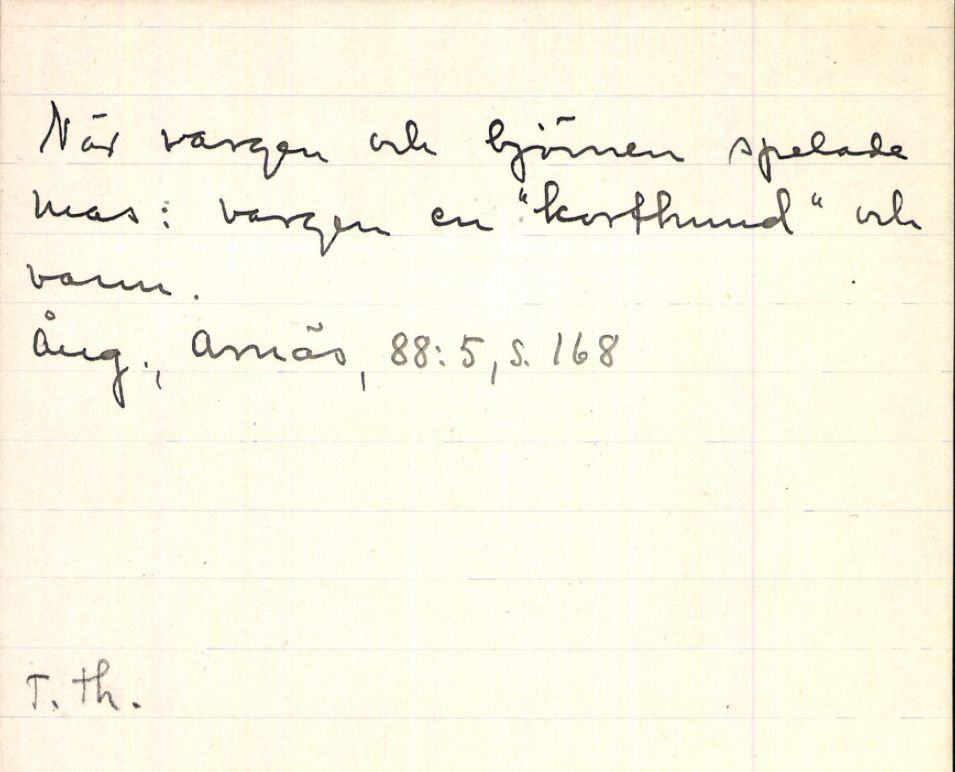 När vargen och björnen spelade
mas: vargen en "korthund" och
vann.
Ång., Arnäs, 88:5, s. 168
T. th.